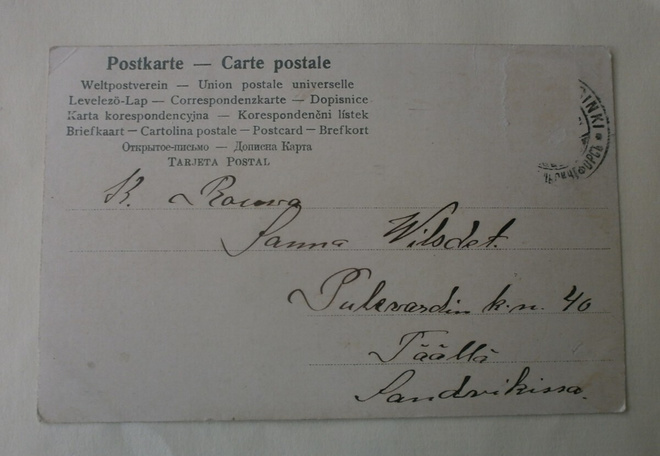 Postkarte — Carte postale
Weltpostverein — Union postale universelle
Levelező-Lap — Correspondenzkarte — Dopisnice
Karta korespondencyjna — Korespondenčni lístek
Briefkaart — Cartolina postale — Postcard — Brefkort
Открытое-письмо — Дописна Карта
TARJETA POSTAL
INKI
R. Rouva
Sanna Wilsdet.
Pulevardin k.n. 40
Täällä
Sandvikissa.